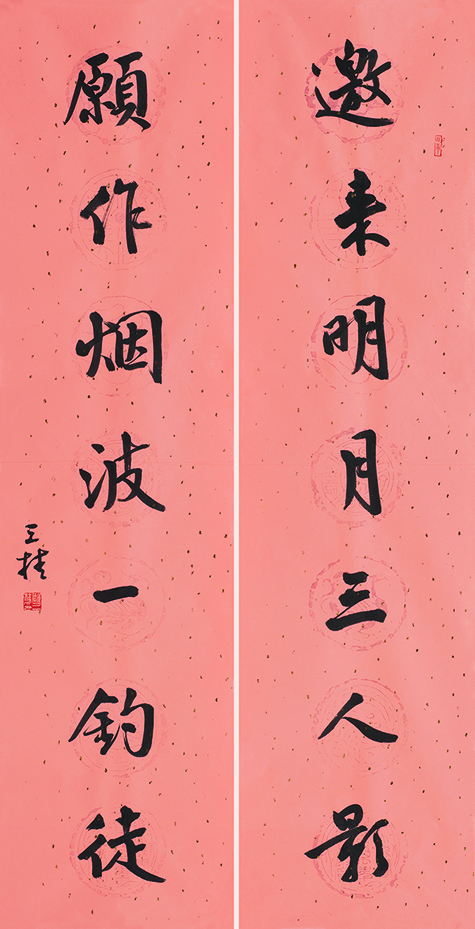 邀来明月三人影
願作烟波一钓徒